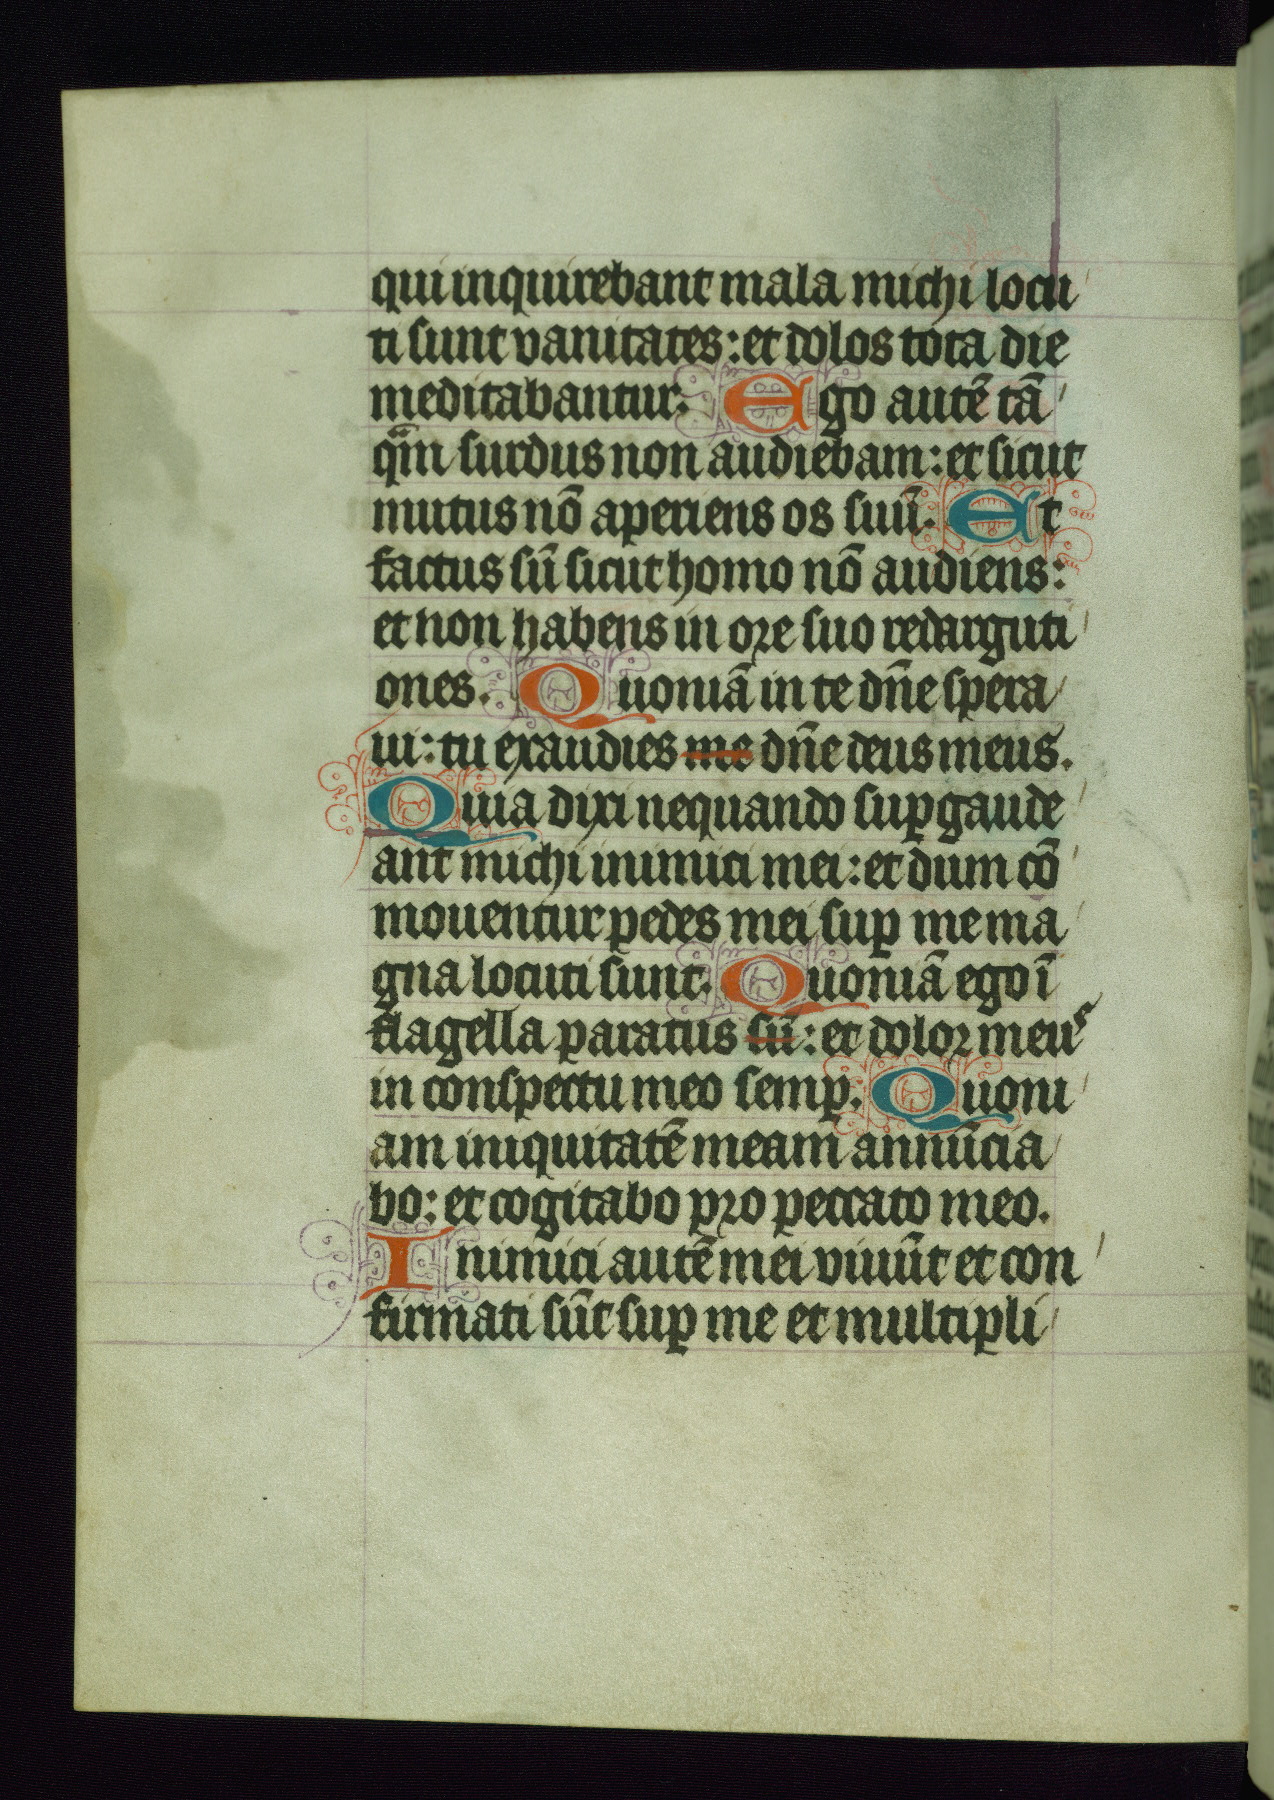 qui inquirebant mala michi locu
ti sunt vanitates: et dolos tota die
meditabantur. Ego autē tā
qm̄ surdus non audiebam: et sicut
mutus nō aperiens os suū. Et
factus sū sicut homo nō audiens:
et non habens in ore suo redarguti
ones. Quoniā in te dn̄e spera
ui: tu exaudies me dn̄e deus meus.
Quia dixi nequando suꝑgaude
ant michi inimici mei: et dum cō
mouentur pedes mei suꝑ me ma
gna locuti sunt. Quoniā ego ī
flagella paratus sū: et dolor meus
in conspectu meo semꝑ. Quoni
am iniquitatē meam annūcia
bo: et cogitabo pro peccato meo.
Inimici autē mei viuūt et con
firmati sūt suꝑ me et multipli